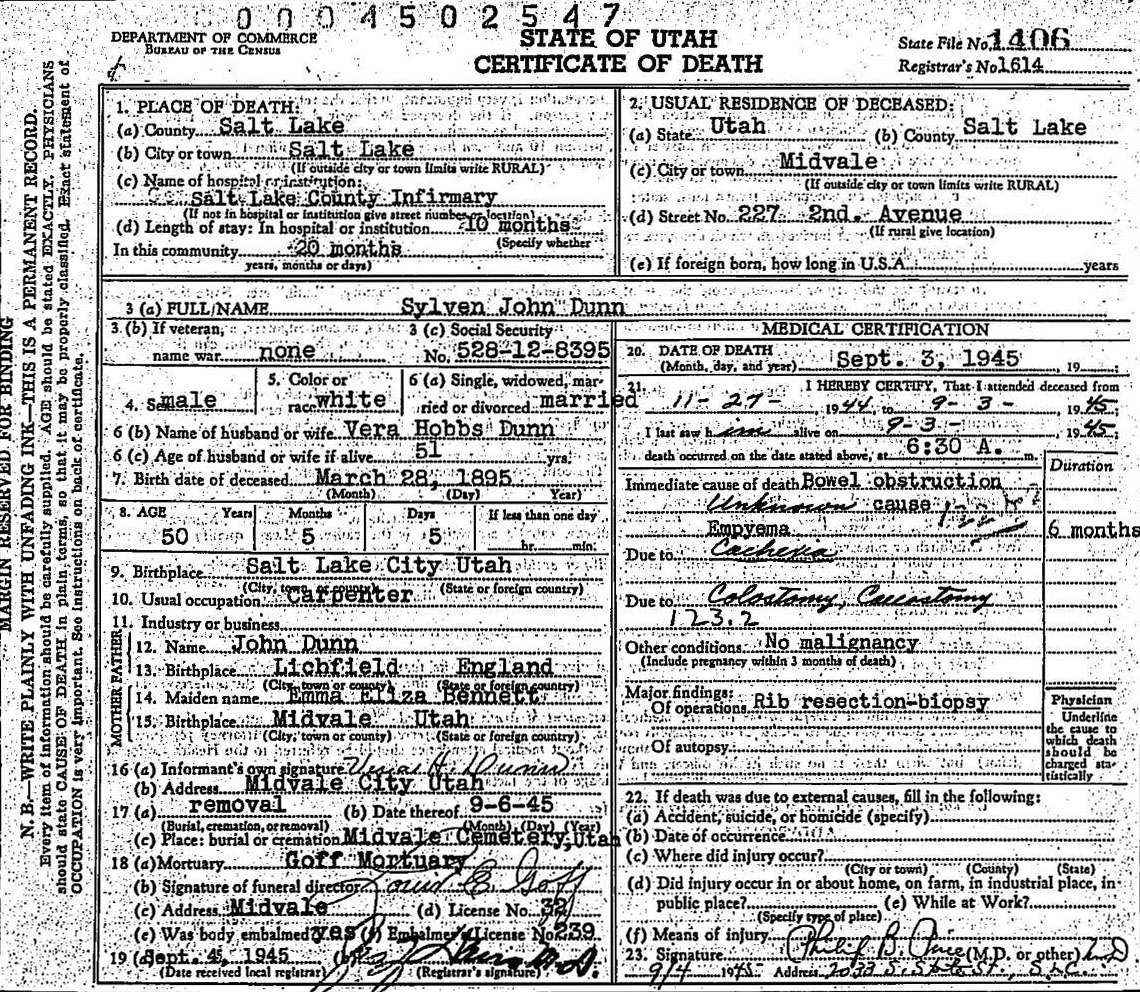 0004502547
DEPARTMENT OF COMMERCE
BUREAU OF THE CENSUS
STATE OF UTAH
CERTIFICATE OF DEATH
State File No. 1406
Registrar's No. 1614
MARGIN RESERVED FOR BINDING
N.B.—WRITE PLAINLY WITH UNFADING INK—THIS IS A PERMANENT RECORD.
Every item of information should be carefully supplied. AGE should be stated EXACTLY. PHYSICIANS
should state CAUSE OF DEATH in plain terms, so that it may be properly classified. Exact statement of
OCCUPATION is very important. See instructions on back of certificate.
1. PLACE OF DEATH:
(a) County Salt Lake
(b) City or town Salt Lake
(If outside city or town limits write RURAL)
(c) Name of hospital or institution:
Salt Lake County Infirmary
(If not in hospital or institution give street number or location)
(d) Length of stay: In hospital or institution 10 months
(Specify whether
In this community 20 months
years, months or days)
2. USUAL RESIDENCE OF DECEASED:
(a) State Utah (b) County Salt Lake
(c) City or town Midvale
(If outside city or town limits write RURAL)
(d) Street No. 227 2nd. Avenue
(If rural give location)
(e) If foreign born, how long in U.S.A. years
3 (a) FULL NAME Sylven John Dunn
3. (b) If veteran,
name war none
3 (c) Social Security
No. 528-12-8395
4. Sex male
5. Color or
race white
6 (a) Single, widowed, mar-
ried or divorced married
6 (b) Name of husband or wife Vera Hobbs Dunn
6 (c) Age of husband or wife if alive 51 yrs.
7. Birth date of deceased March 28, 1895
(Month) (Day) Year)
8. AGE Years Months Days If less than one day
50 5 5 hr. min.
9. Birthplace Salt Lake City Utah
(City, town or county) (State or foreign country)
10. Usual occupation Carpenter
11. Industry or business
FATHER
12. Name John Dunn
13. Birthplace Lichfield England
(City, town or county) (State or foreign country)
MOTHER
14. Maiden name Emma Eliza Bennett
15. Birthplace Midvale Utah
(City, town or county) (State or foreign country)
16 (a) Informant's own signature Dunn
(b) Address Midvale City Utah
17 (a) removal (b) Date thereof 9-6-45
(Burial, cremation, or removal) (Month) (Day) (Year)
(c) Place: burial or cremation Midvale Cemetery, Utah
18 (a) Mortuary Goff Mortuary
(b) Signature of funeral director Louis E. Goff
(c) Address Midvale (d) License No. 32
(e) Was body embalmed? yes (f) Embalmer's License No. 239
19 (a) Sept. 4, 1945 (b) M.D.
(Date received local registrar) (Registrar's signature)
MEDICAL CERTIFICATION
20. DATE OF DEATH
(Month, day, and year) Sept. 3, 1945, 19
21. I HEREBY CERTIFY, That I attended deceased from
11-27- 1944, to 9-3- 1945
I last saw him alive on 9-3- 1945
death occurred on the date stated above, at 6:30 A. m.
Duration
Immediate cause of death Bowel obstruction
Unknown cause
Empyema 6 months
Due to Cachexia
Due to Colostomy, Cecostomy
123.2
Other conditions No malignancy
(Include pregnancy within 3 months of death)
Major findings:
Of operations Rib resection-biopsy
Of autopsy
Physician
Underline
the cause to
which death
should be
charged sta-
tistically
22. If death was due to external causes, fill in the following:
(a) Accident, suicide, or homicide (specify)
(b) Date of occurrence
(c) Where did injury occur?
(City or town) (County) (State)
(d) Did injury occur in or about home, on farm, in industrial place, in-
public place? (e) While at Work?
(Specify type of place)
(f) Means of injury
23. Signature Philip B. (M.D. or other) M.D
9/4 1945 Address 2033 S. State St., S.L.C.